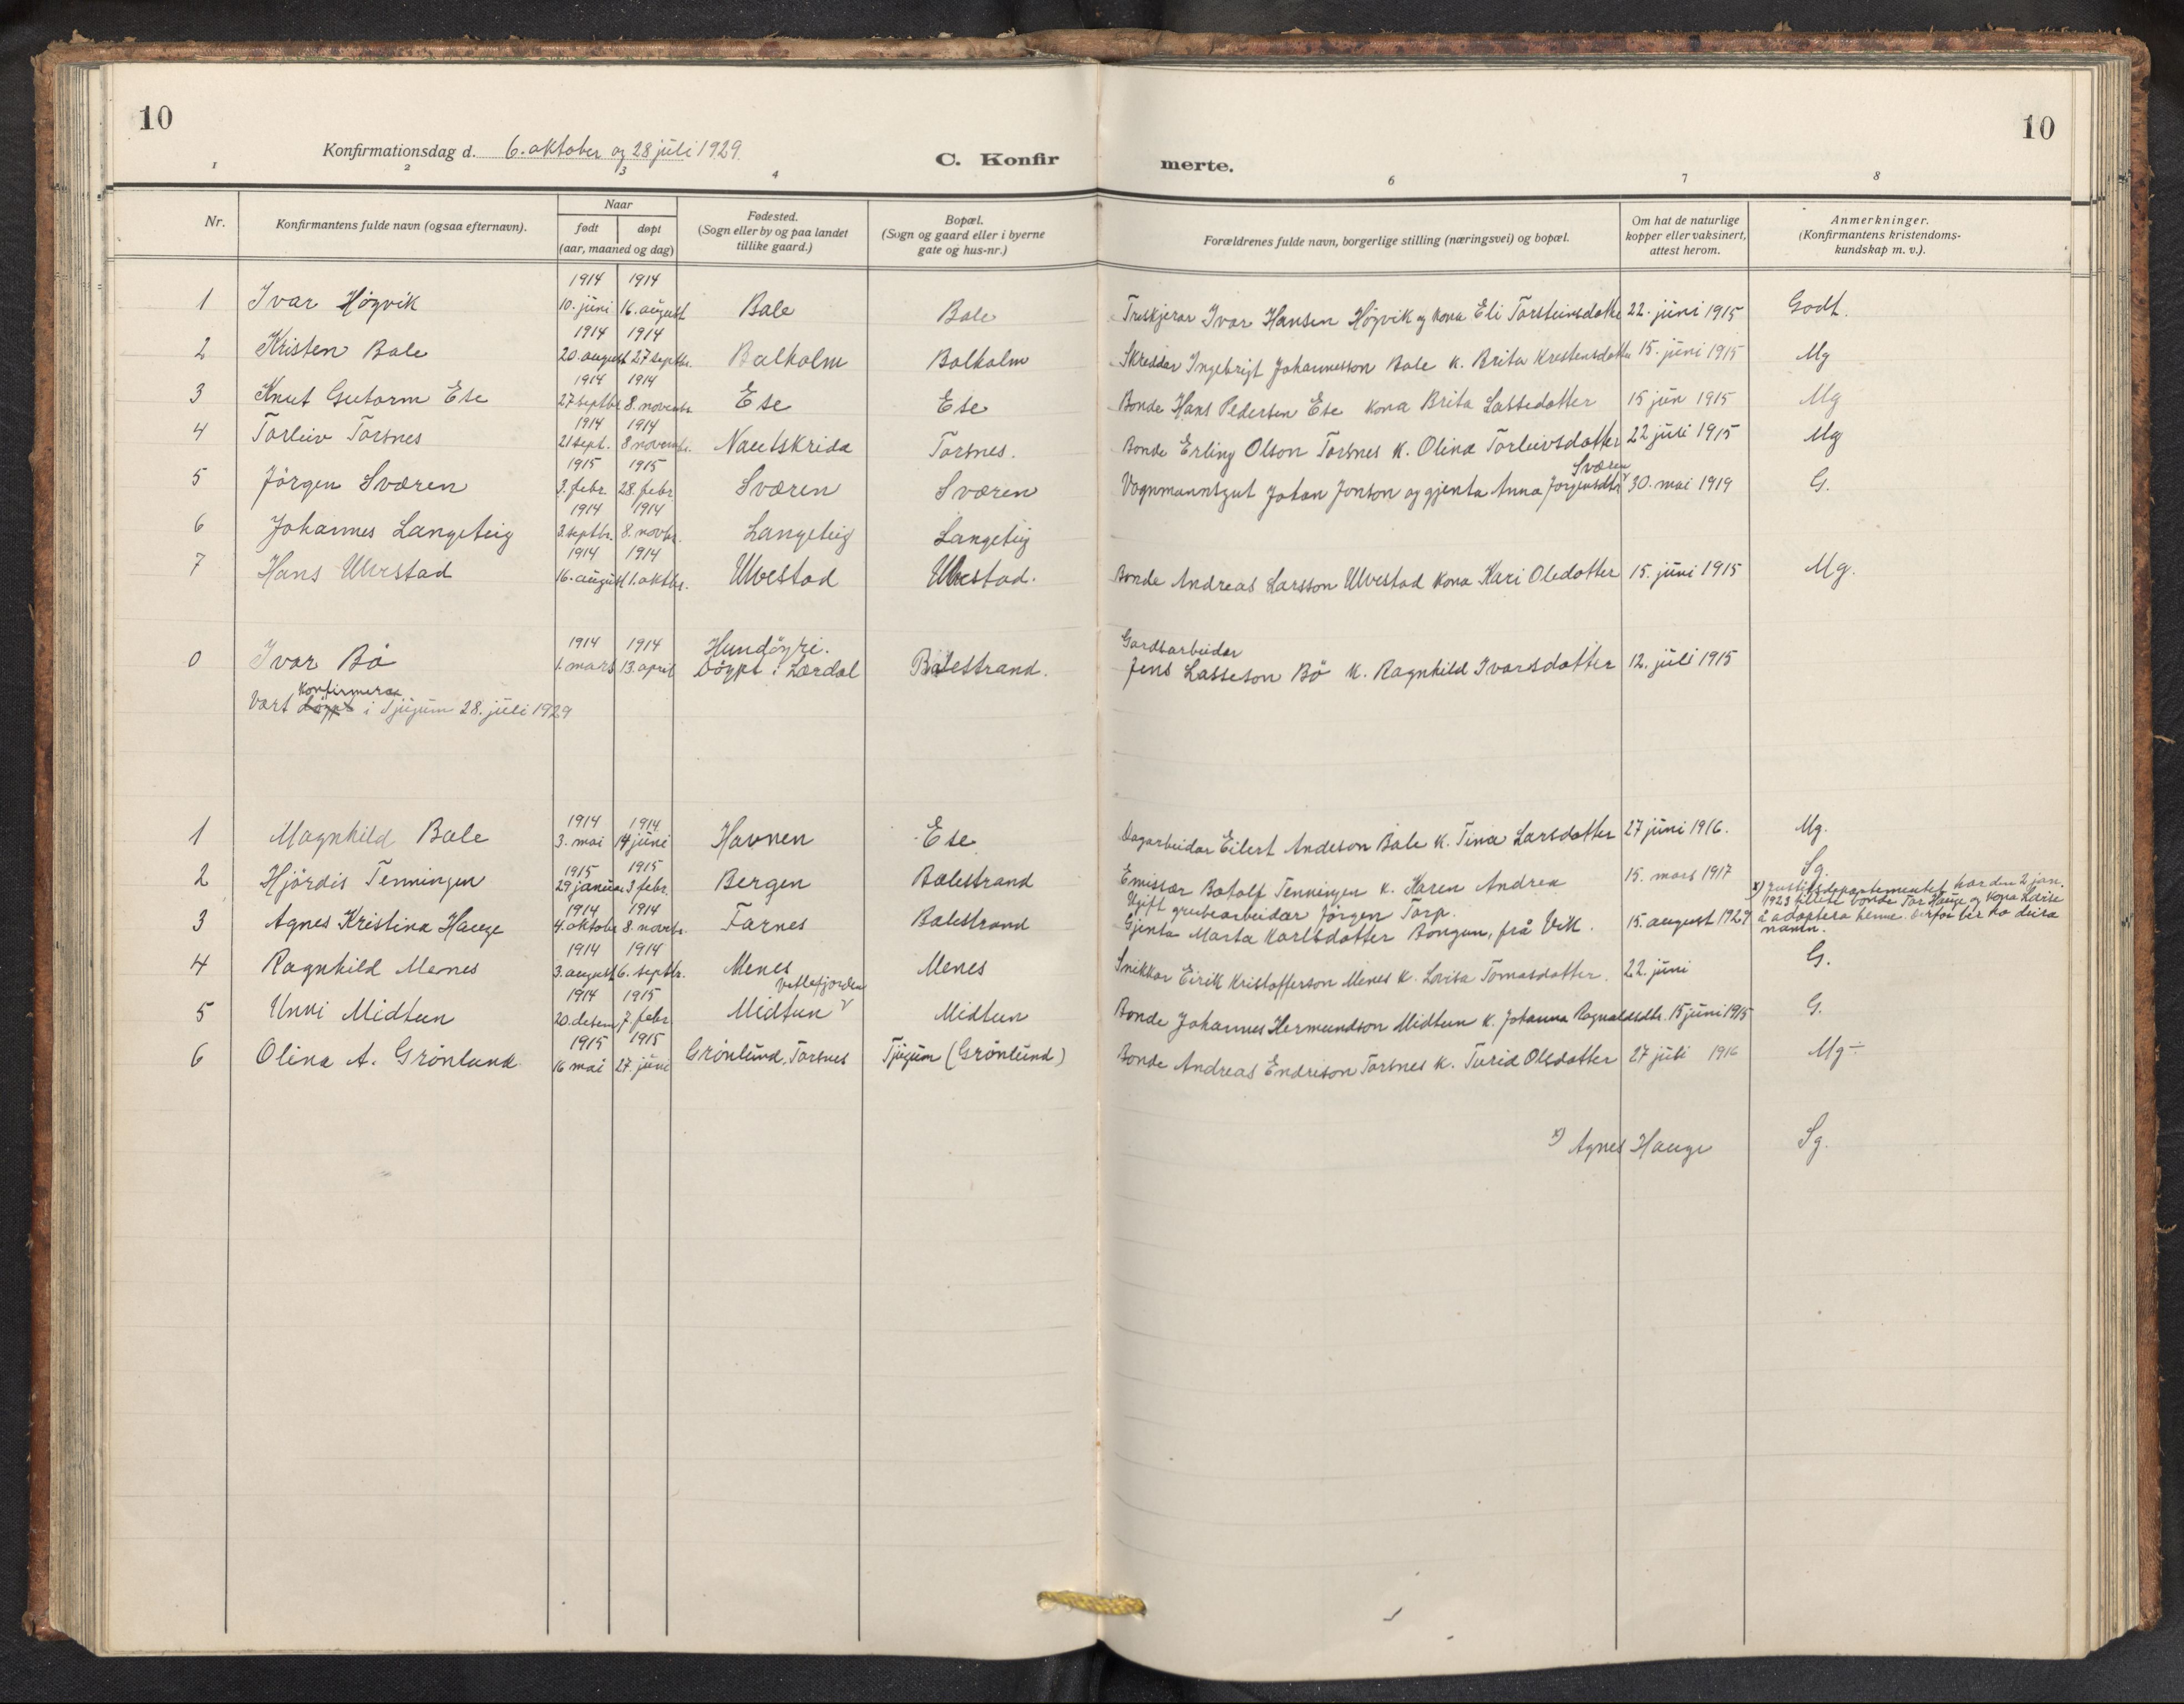 10
10
Konfirmationsdag d. 6. oktober og 28 juli 1929
C. Konfirmerte.
1 2 3 4 6 7 8
Nr.
Konfirmantens fulde navn (ogsaa efternavn).
Naar
født døpt
(aar, maaned og dag)
Fødested.
(Sogn eller by og paa landet
tillike gaard.)
Bopæl.
(Sogn og gaard eller i byerne
gate og hus-nr.)
Forældrenes fulde navn, borgerlige stilling (næringsvei) og bopæl.
Om hat de naturlige
kopper eller vaksinert,
attest herom.
Anmerkninger.
(Konfirmantens kristendoms-
kundskap m. v.).
1914 1914
1 Ivar Högvik 10. juni 16. august Bale Bale Treskjerar Ivar Hansen Högvik og kona Eli Torsteinsdotter 22. juni 1915 Godt.
1914 1914
2 Kristen Bale 20. august 27 septbr. Balholm Balholm Skreddar Ingebrigt Johannesson Bale k. Brita Krestensdotter 15. juni 1915 Mg
1914 1914
3 Knut Gutorm Ese 27 septbr 8. novembr. Ese Ese Bonde Hans Pedersen Ese kona Brita Lassedotter 15 jun 1915 Mg
1914 1914
4 Torleiv Torsnes 21 sept. 8 novembr. Nautskrida Torsnes. Bonde Erling Olson Torsnes k. Olina Torleivsdotter 22 juli 1915 Mg
1915 1915
Sværen
5 Jörgen Sværen 3. febr. 28. febr. Sværen Sværen Vognmannsgut Johan Jonson og gjenta Anna Jorgensdtr v 30. mai 1919 G.
1914 1914
6 Johannes Langeteig 3. septbr. 8. novbr. Langeteig Langeteig
1914 1914
7 Hans Ulvestad 16. august 1. oktbr. Ulvestad Ulvestad. Bonde Andreas Larsson Ulvestad kona Kari Oledotter 15. juni 1915 Mg.
1914 1914 Hundöyri. Gardsarbeidar
0 Ivar Bö 1. mars 13. april Döypt i Lærdal Balestrand. Jens Lasseson Bö k. Ragnhild Ivarsdotter 12. juli 1915
konfirmera
Vart döypt i Tjugum 28. juli 1929
1914 1914
1 Magnhild Bale 3. mai 14 juni Havnen Ese Dagarbeidar Eilert Andeson Bale k. Tina Larsdotter 27 juni 1916. Mg.
1915 1915
2 Hjördis Tenningen 29 januar 3 febr. Bergen Balestrand Emissær Botolf Tenningen k. Karen Andrea 15. mars 1917 Sg.
x) Justisdepartementet har den 2 jan.
1923 tillete bonde Tor Hauge og kona Larise
å adoptera henne. Derfor ber ho deira
namn.
1914 1914 Ugift grubearbeidar Jörgen Torp.
3 Agnes Kristina Hauge 4. oktobr 8. novbr. Farnes Balestrand Gjenta Marta Karlsdotter Bongun, frå Vik. 15. august 1929
1914 1914
4 Ragnhild Menes 3. august 6. septbr. Menes Menes Snikkar Eirik Kristofferson Menes k. Lovisa Tomasdotter. 22. juni G.
1914 1915 Vetlefjorden
5 Unni Midtun 20. desem 7. febr. Midtun v Midtun Bonde Johannes Hermundson Midtun k. Johanna Ragnaldsdtr. 15 juni 1915 G.
1915 1915
6 Olina A. Grönlund 16 mai 27. juni Grönlund, Torsnes Tjugum (Grönlund) Bonde Andreas Endrison Torsnes k. Turid Olsdotter 27 juli 1916 Mg ÷
x) Agnes Hauge Sg.